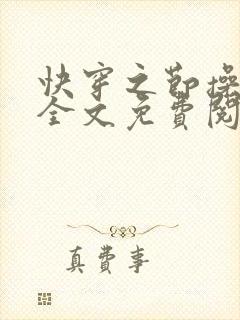 快穿之節操
全文免費閱
真費事